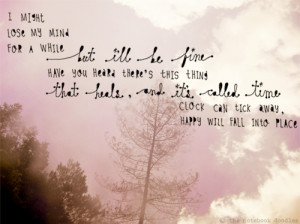 I MIGHT
LOSE MY MIND
FOR A WHILE
but i'll be fine
HAVE YOU HEARD THERE'S THIS THING
that heals, and it's called time
CLOCK CAN TICK AWAY,
HAPPY WILL FALL INTO PLACE